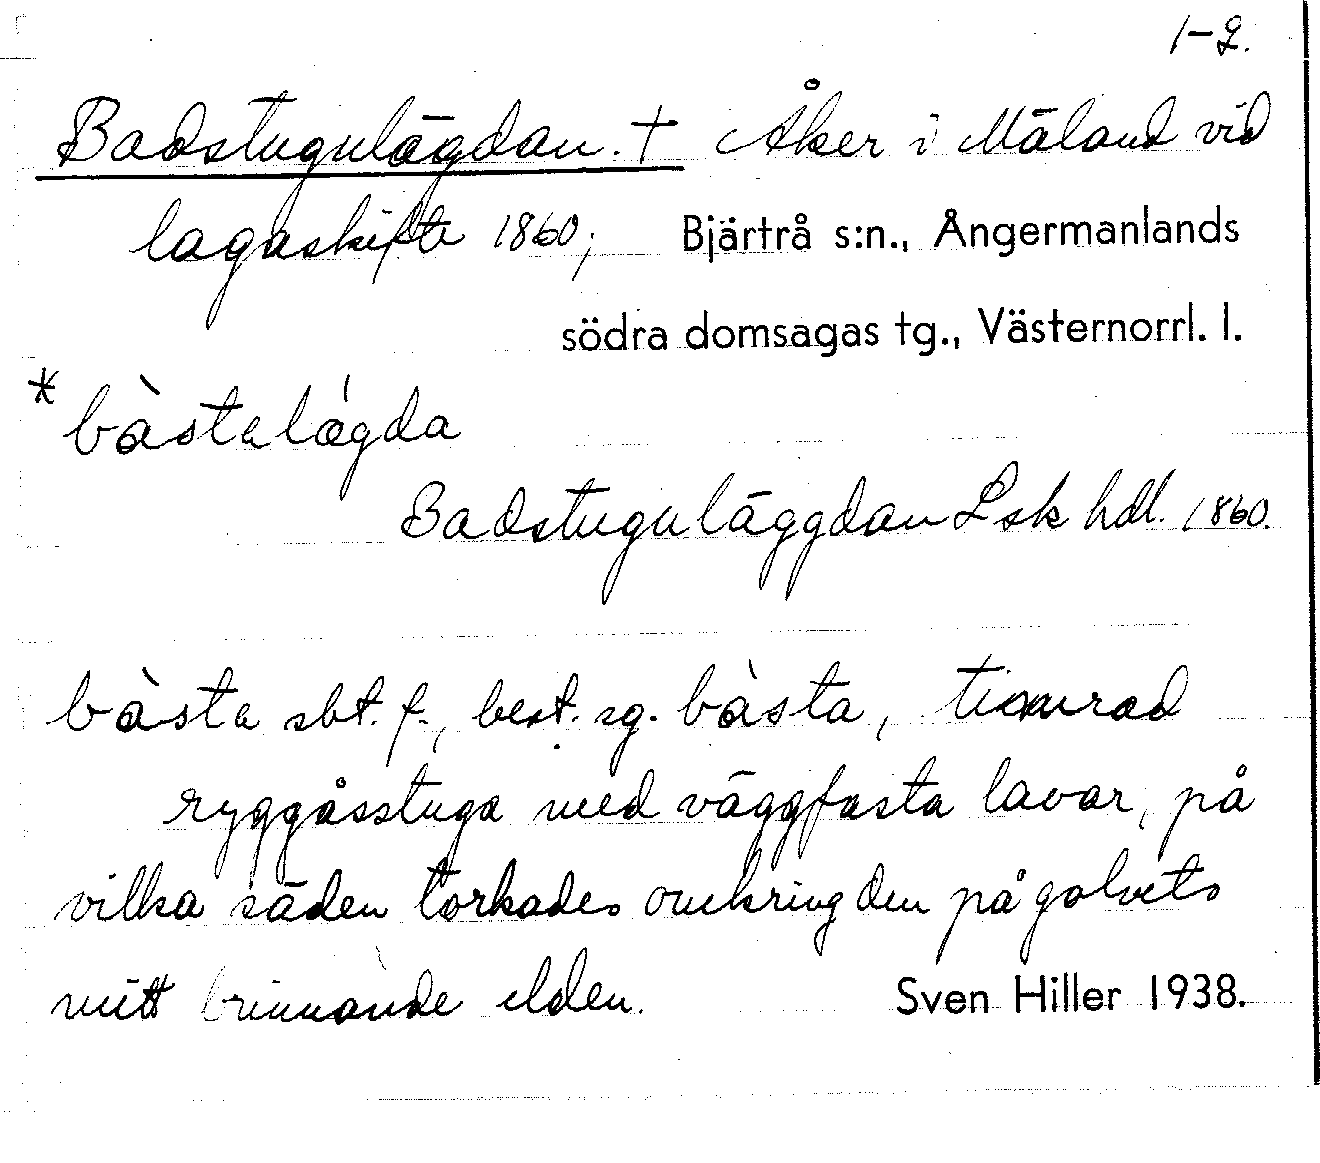 1-2.
Badstugulägdan. † Åker i Mäland vid
lagaskifte 1860; Bjärtrå s:n., Ångermanlands
södra domsagas tg., Västernorrl. l.
* bàstalǽgda
Badstuguläggdan Lsk hdl. 1860.
bàsta sbt. f., best. sg. bàsta, timrad
ryggåsstuga med väggfasta lavar, på
vilka säden torkades omkring den på golvets
mitt brinnande elden. Sven Hiller 1938.